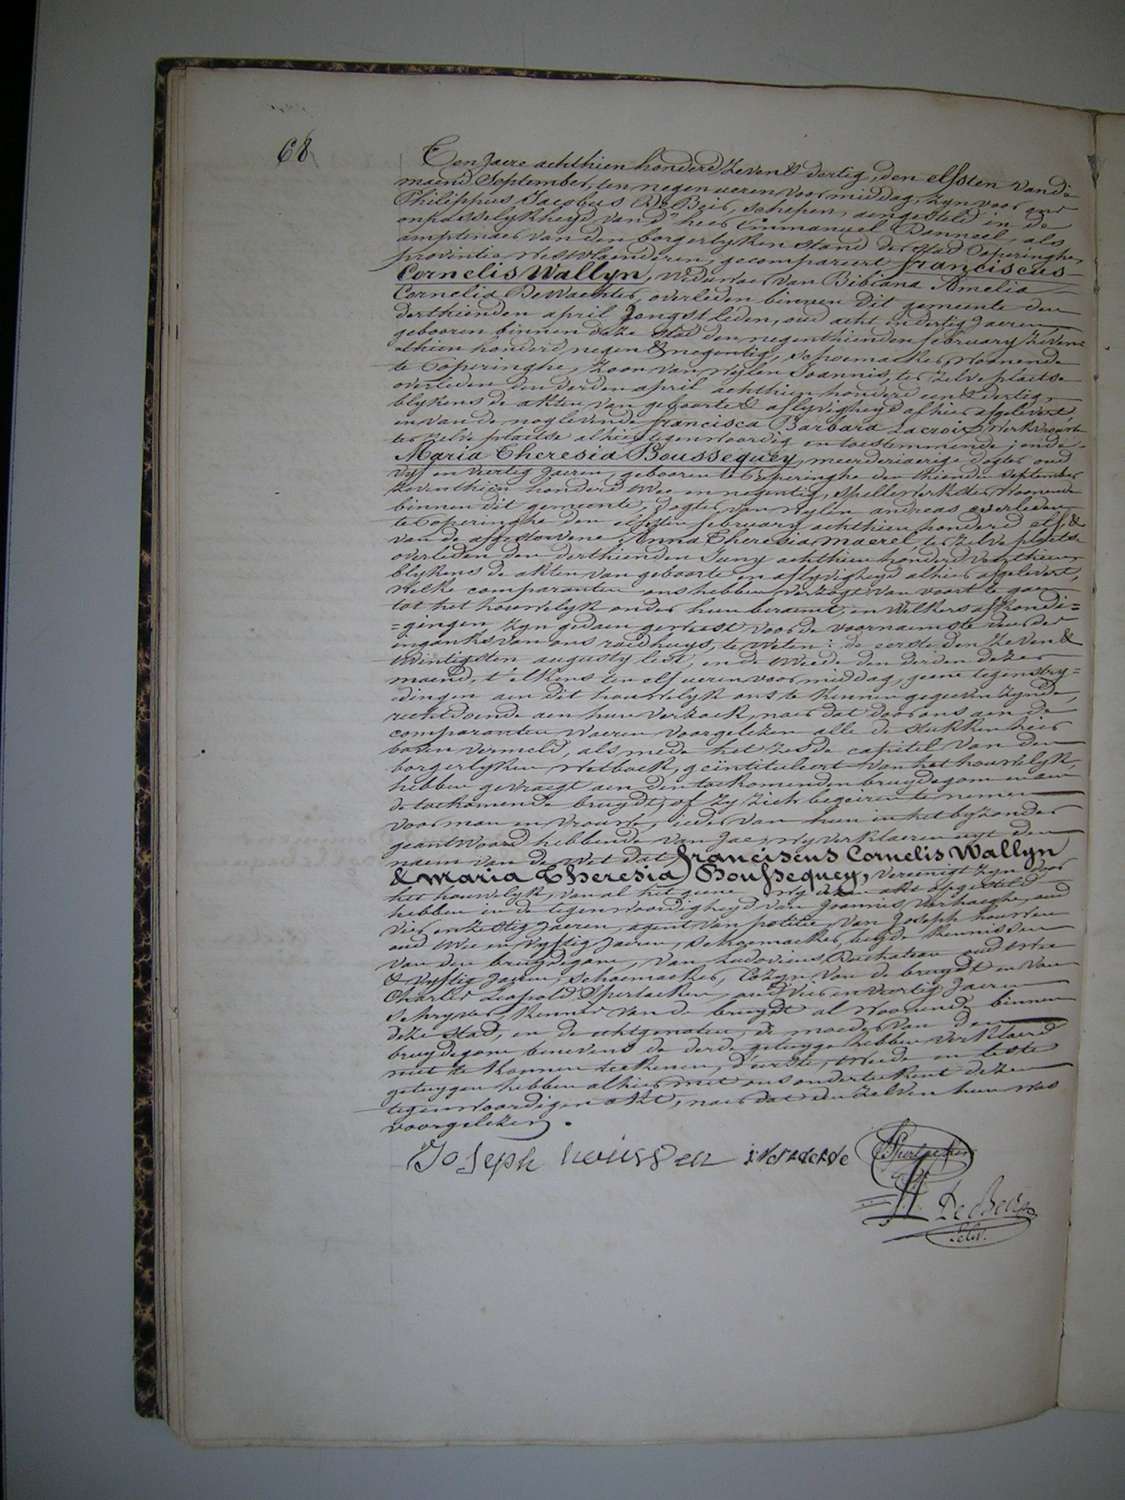 68
Een Jaere achthien honderd Zeven & dertig, den elfsten van de
maend September, ten negen ueren voor middag, Zyn voor ons
Philippus Jacobus De Beir, Schepen, aengesteld in de
onpasselykheyd van d'heer Emmanuel Denneel, als
amptenaer van den borgerlyken stand der stad Poperinghe
provintie Westvlaenderen, gecompareert franciscus
Cornelis Wallyn, Weduwaer van Bibiana Amelia
Cornelia De Wachter, overleden binnen dit gemeente den
derthienden april Jongstleden, oud acht en dertig Jaeren
gebooren binnen deze stad den negenthienden february Zeven-
thien honderd negen & negentig, schoemaeker, woonende
te Poperinghe, Zoon van wylen Joannis, ter Zelve plaetse
overleden den derden april achthien honderd een & dertig,
blykens de akten van geboorte & aflyvigheyd alhier afgelevert,
en van de noglevende francisca Barbara Lacroix, Werkvrouw
ter Zelve plaetse alhier tegenwoordig en toestemmende; ende
Maria Theresia Boussequey, meerderjaerige dogter oud
vyf en viertig Jaeren, gebooren te Poperinghe den thienden september
Zeventhien honderd twee en negentig, spellewerkster, woonende
binnen dit gemeente, dogter van wylen andreas overleden
te Poperinghe den elfsten february achthien honderd elf &
van de afgestorvene Anna Theresia Maerel ter Zelve plaetse
overleden den derthienden Juny achthien honderd veerthien,
blykens de akten van geboorte en aflyvigheyd alhier afgelevert,
Welke comparanten ons hebben verzogt van voort te gaen
tot het houwelyk onder hun beraemt, en welkers afkondi=
=gingen Zyn gedaen geweest voor de voornaemste deur der
ingank van ons raedhuys, te weten: de eerste den Zeven &
twintigsten augusty lest, en de tweede den derden dezer
maend, t'elkens ten elf ueren voor middag, geene tegenstry=
=dingen aen dit houwelyk ons te kennen gegeven Zynde,
rechtdoende aen hun verzoek, naer dat door ons aen de
comparanten waeren voorgelezen alle de stukken hier
boven vermeld, als mede het Zesde capitel van den
borgerlyken Wetboek, geïntituleert van het houwelyk,
hebben gevraegt aen den toekomenden bruydegom en aen
de toekomende bruydt, of Zy Zich begeiren te nemen
voor man en vrouw, ieder van hun in het byzonder
geantwoord hebbende van Jae, wy verklaeren uyt den
naem van de wet dat franciscus Cornelis Wallyn
& Maria Theresia Boussequey, vereenigt Zyn door
het houwelyk, van al het geene wy dezen akt opgesteld
hebben in de tegenwoordigheyd van Joannis Verhaeghe, oud
vier en Zestig Jaeren, agent van politie, van Joseph houvven
oud twee en vyftig Jaeren, schoemaeker, beyde kennissen
van den bruydegom, van Ludovicus Duchateau oud twee
& vyftig Jaeren, schoemaeker, Cozyn van de bruydt en van
Charles Leopold Sperlaeken, oud vier en viertig Jaeren
schryver, kennis van de bruydt al woonende binnen
deze stad, en de echtgenoten, de moeder van den
bruydegom benevens de derde getuyge hebben verklaerd
niet te konnen teekenen, d'eerste, tweede en leste
getuygen hebben alhier met ons onderteekent dezen
tegenwoordigen akt, naer dat den Zelven hun was
voorgelezen.
Joseph houvven
De Beir
Sch.